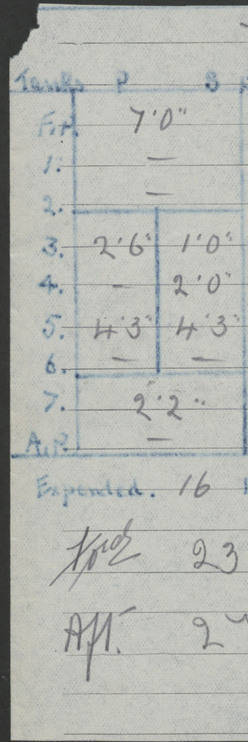 Tanks P S
F.P. 7'0"
1. —
2. —
3. 2'6" 1'0"
4. - 2'0"
5. 4'3" 4'3"
6. — —
7. 2'2"
A.P. —
Expended. 16
Ford 23
Aft. 2